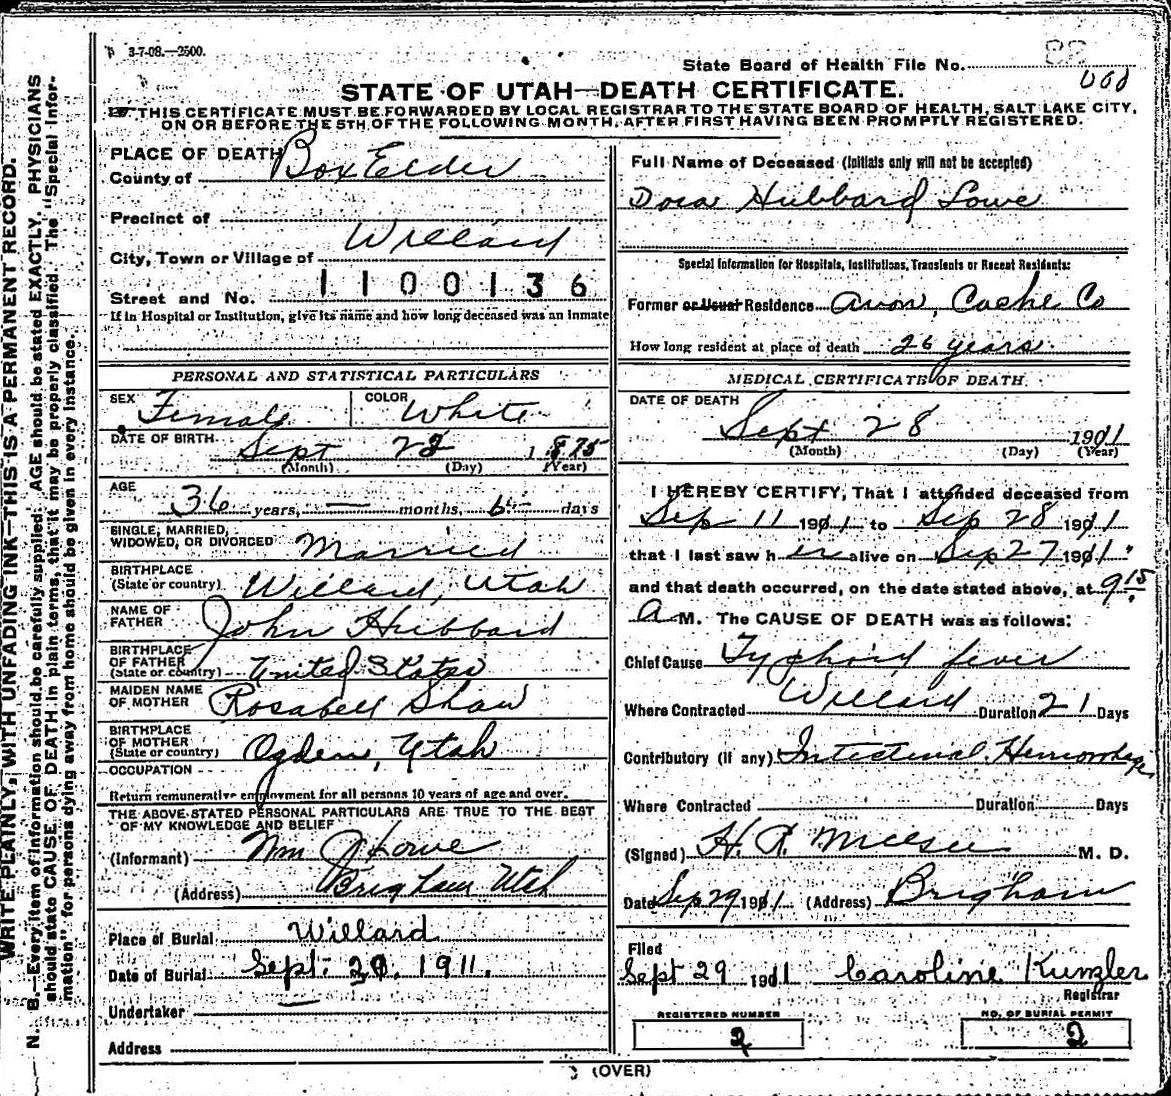 3-7-08.—2500.
State Board of Health File No.
STATE OF UTAH—DEATH CERTIFICATE.
THIS CERTIFICATE MUST BE FORWARDED BY LOCAL REGISTRAR TO THE STATE BOARD OF HEALTH, SALT LAKE CITY,
ON OR BEFORE THE 5TH OF THE FOLLOWING MONTH, AFTER FIRST HAVING BEEN PROMPTLY REGISTERED.
WRITE PLAINLY, WITH UNFADING INK—THIS IS A PERMANENT RECORD.
N. B.—Every item of information should be carefully supplied. AGE should be stated EXACTLY. PHYSICIANS
should state CAUSE OF DEATH in plain terms, that it may be properly classified. The "Special Infor-
mation" for persons dying away from home should be given in every instance.
PLACE OF DEATH
County of Box Elder
Precinct of
City, Town or Village of Willard
Street and No. 1100136
If in Hospital or Institution, give its name and how long deceased was an inmate
PERSONAL AND STATISTICAL PARTICULARS
SEX Female COLOR White
DATE OF BIRTH Sept 22 1875
(Month) (Day) (Year)
AGE 36 years, — months, 6 days
SINGLE, MARRIED,
WIDOWED, OR DIVORCED Married
BIRTHPLACE
(State or country) Willard, Utah
NAME OF
FATHER John Hubbard
BIRTHPLACE
OF FATHER
(State or country) United States
MAIDEN NAME
OF MOTHER Rosabell Shaw
BIRTHPLACE
OF MOTHER
(State or country) Ogden, Utah
OCCUPATION
Return remunerative employment for all persons 10 years of age and over.
THE ABOVE STATED PERSONAL PARTICULARS ARE TRUE TO THE BEST
OF MY KNOWLEDGE AND BELIEF
(Informant) Wm J Lowe
(Address) Brigham Utah
Place of Burial Willard
Date of Burial Sept. 1911.
Undertaker
Address
Full Name of Deceased (Initials only will not be accepted)
Dora Hubbard Lowe
Special Information for Hospitals, Institutions, Transients or Recent Residents:
Former or Usual Residence Avon, Cache Co
How long resident at place of death 26 years
MEDICAL CERTIFICATE OF DEATH
DATE OF DEATH
Sept 28 1911
(Month) (Day) (Year)
I HEREBY CERTIFY, That I attended deceased from
Sep 11 1911 to Sep 28 1911
that I last saw h er alive on Sep 27 1911
and that death occurred, on the date stated above, at 9 15
A M. The CAUSE OF DEATH was as follows:
Chief Cause Typhoid fever
Where Contracted Willard Duration 21 Days
Contributory (if any) Intestinal Hemorrhage
Where Contracted Duration Days
(Signed) H. R. M. D.
Date Sep 29 1911 (Address) Brigham
Filed
Sept 29 1911 Caroline Kunzler
Registrar
REGISTERED NUMBER
2
NO. OF BURIAL PERMIT
2
(OVER)